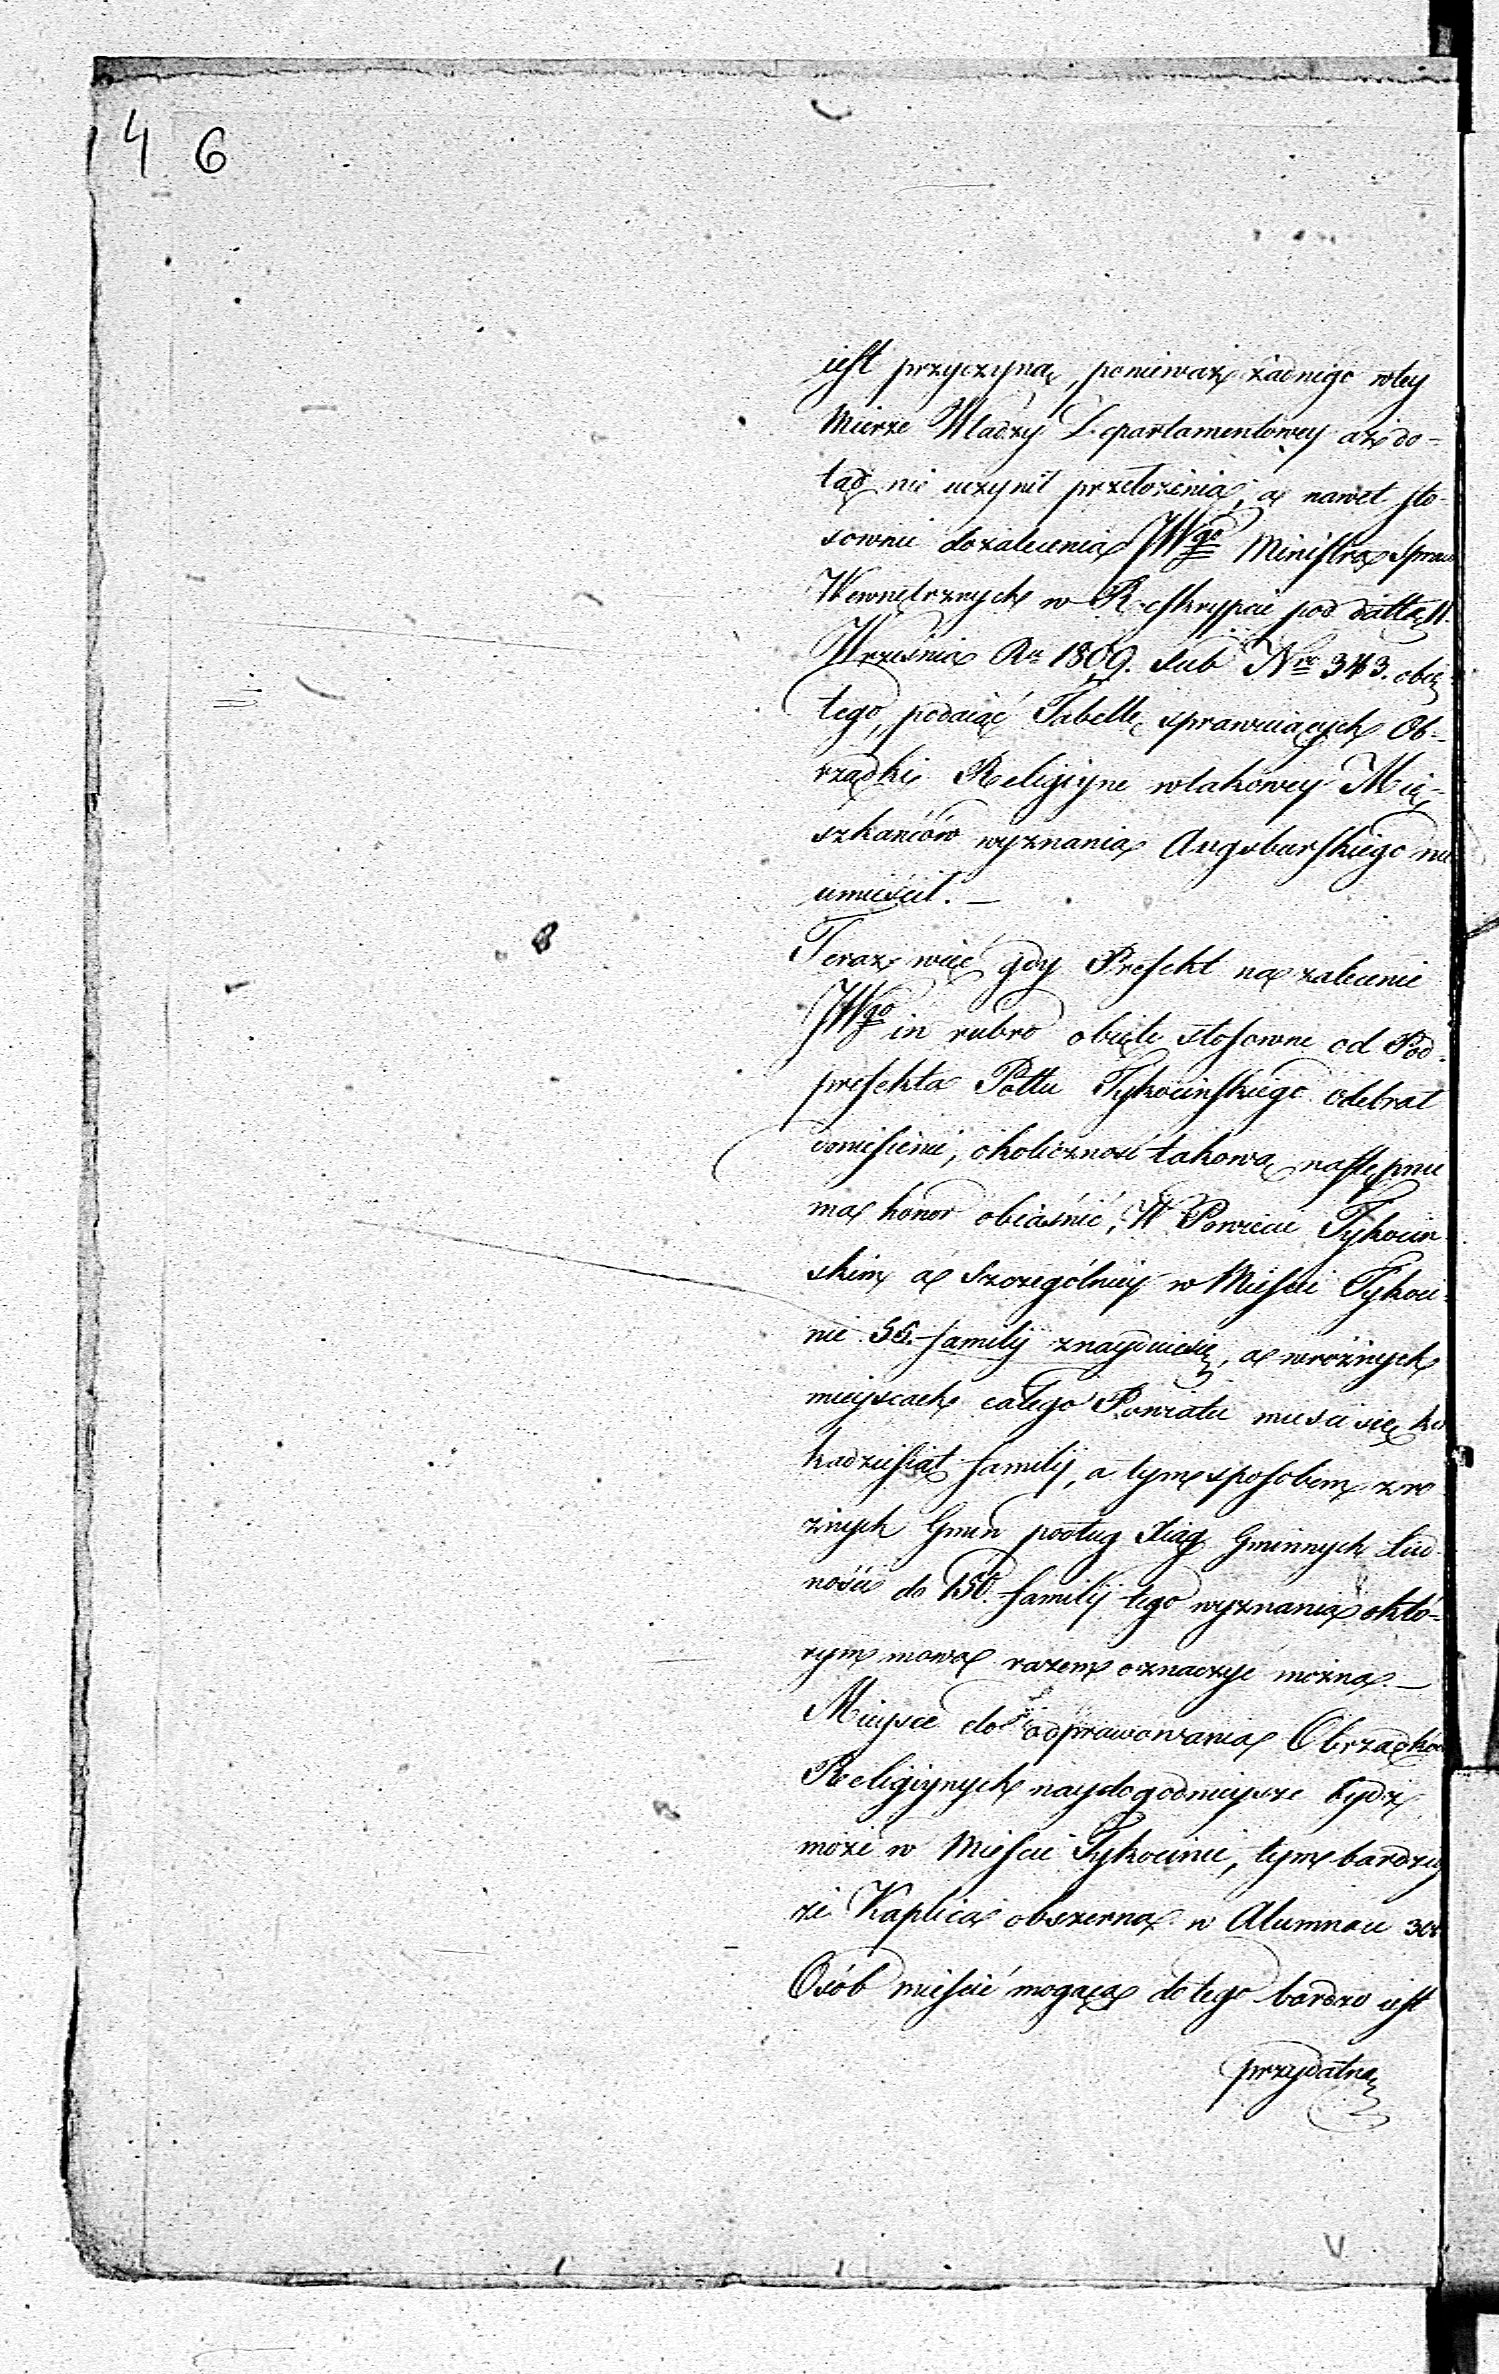 46
iest przyczyną, ponieważ żadnego wtey
Mierze Władzy Departamentowey aż do-
tąd nie uczynił przełożenia, a nawet sto-
sownie dozalecenia JWgo Ministra Spraw
Wewnętrznych w Reskrypcie pod dattą 11.
Września Ro 1809. sub Nro 343. obię-
tego, podaiąć Tabellę sprawuiących Ob-
rządki Religiyne wtakowey Mie-
szkańców wyznania Augsburskiego nie
umieścił. —
Teraz wieć gdy Prefekt na zalecenie
JWgo in rubro obięte stosowne od Pod-
prefekta Pottu Tykocinskiego odebrał
doniesienie, okoliczność takową następnie
ma honor obiaśnić, W Powiecie Tykocin-
skim a szczególniey w Mieście Tykoci-
nie 56. familij znayduiesię, a wróżnych
mieyscach całego Powiatu mieści się kil
kadziesiąt familij, a tym sposobem zro
żnych Gmin podług Xiąg Gminnych Lud
ności do 150. familij tego wyznania októ-
rym mowa razem oznaczyć można. —
Mieysce do odprawowania Obrządków
Religiynych naydogodnieysze bydź
może w Mieście Tykocinie, tym bardziey
że Kaplica obszerna w Alumnacie 300
Osób mieścić mogąca do tego bardzo iest
przydatna